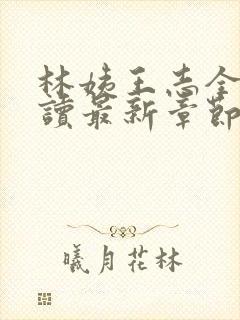 林姨王志全
讀最新章節
曦月花林